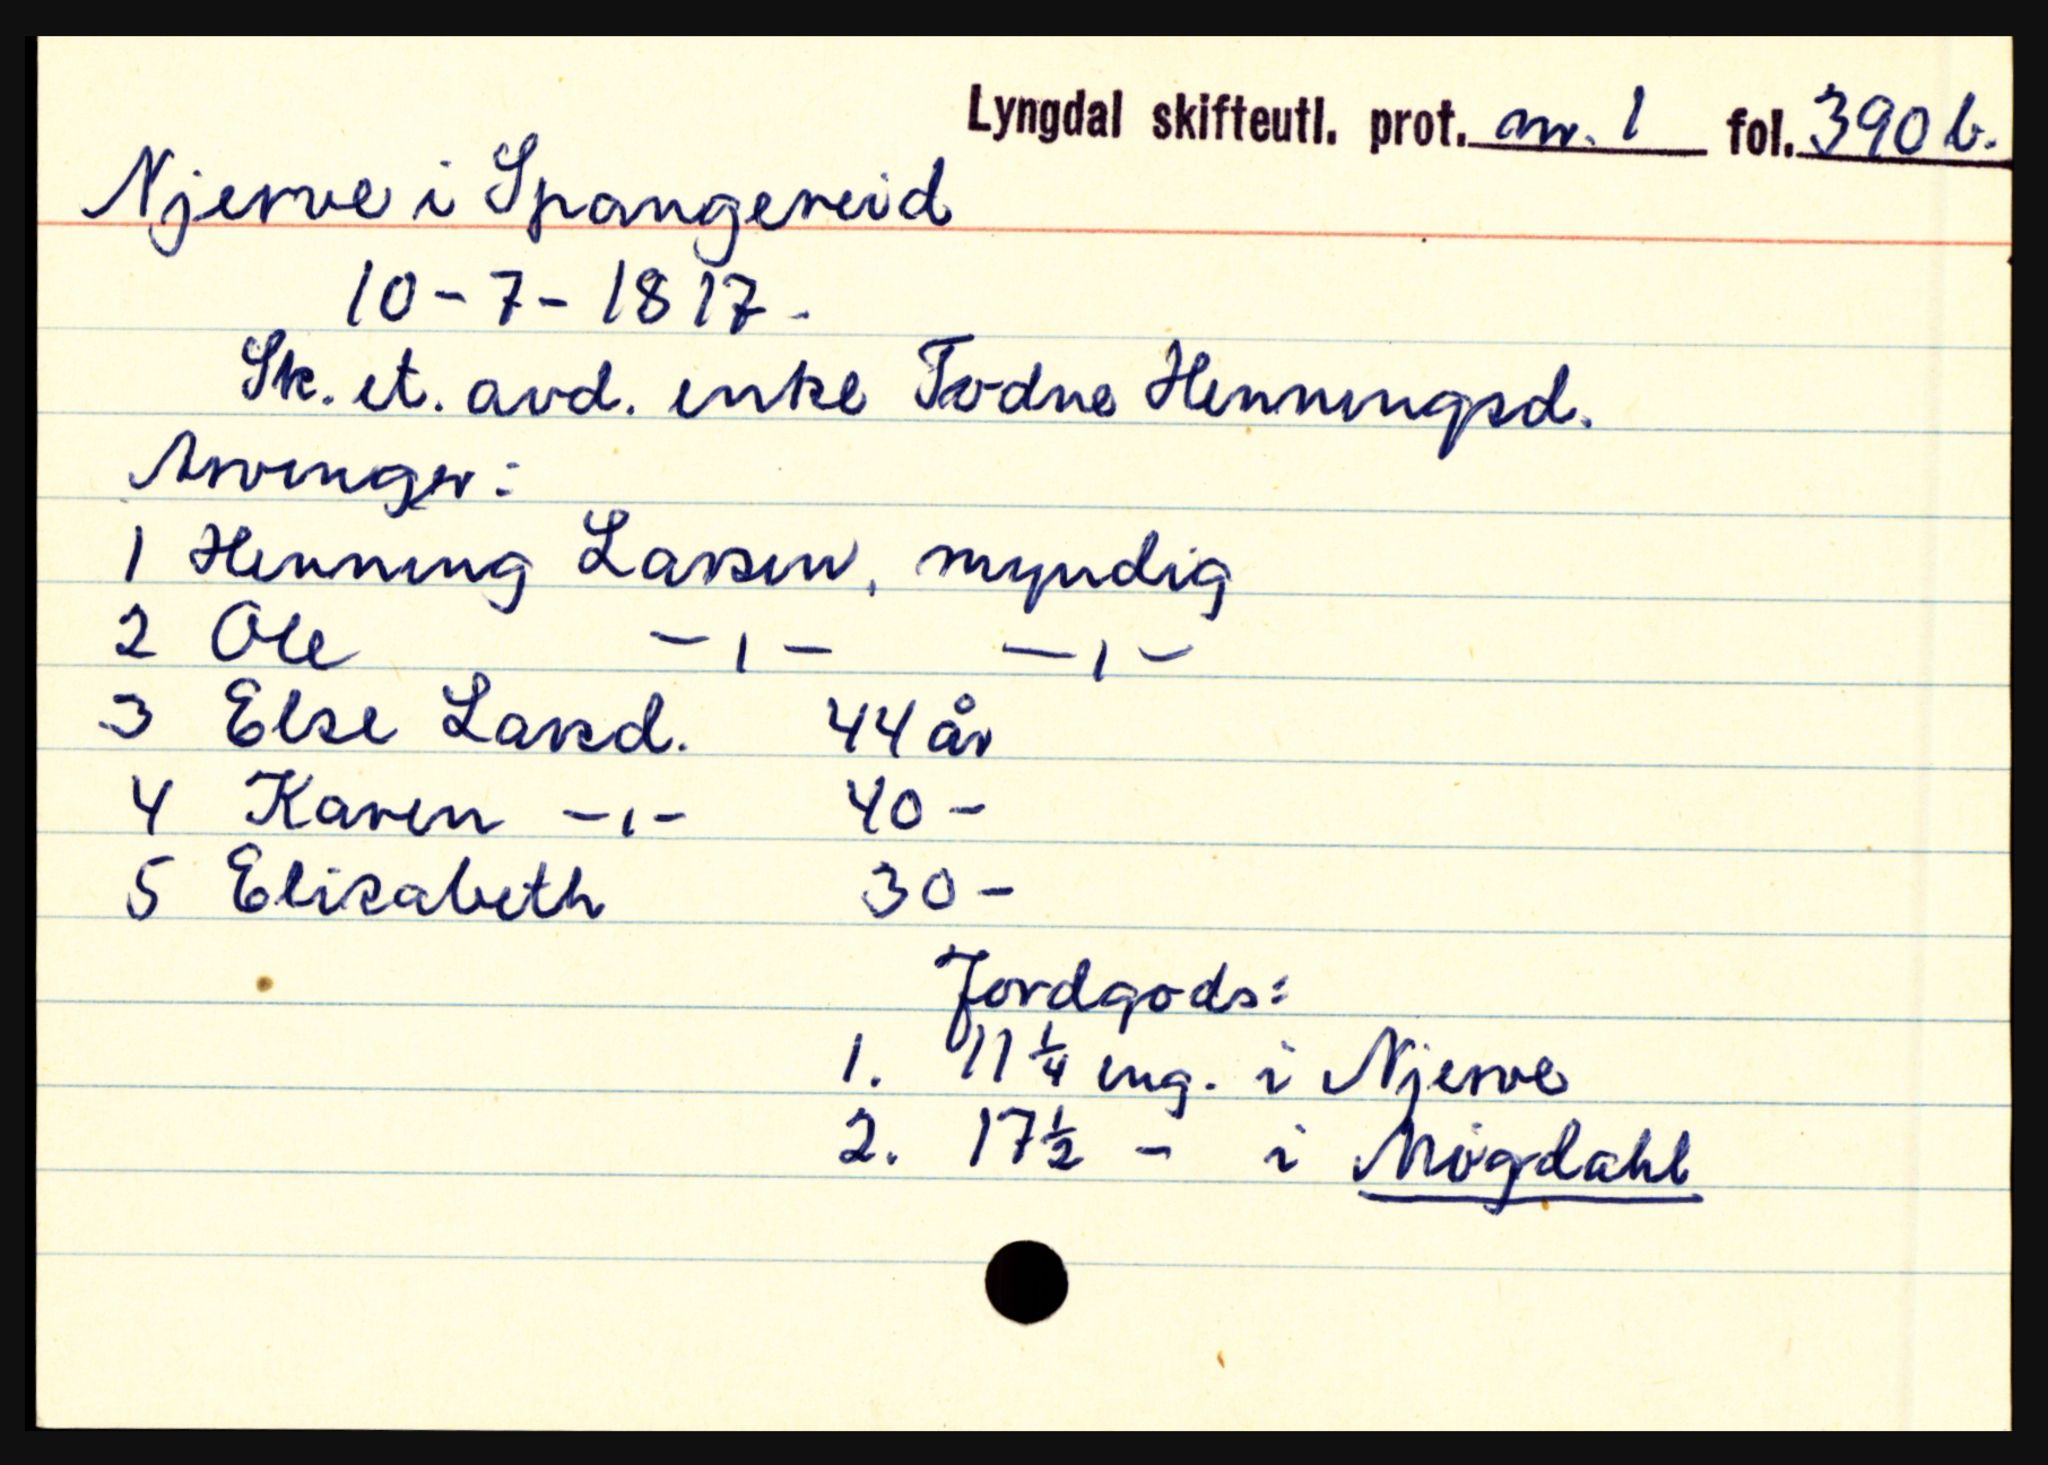 Lyngdal skifteutl. prot. nr. 1 fol. 390 b.
Njerve i Spangereid
10-7-1817.
Sk. et. avd. enke Todne Henningsd.
Arvinger:
1 Henning Larsen, myndig
2 Ole -,- -,-
3 Else Larsd. 44 år
4 Karen -,- 40 -
5 Elisabeth 30 -
Jordgods:
1. 11 1/4 eng. i Njerve
2. 17 1/2 - i Møgdahl